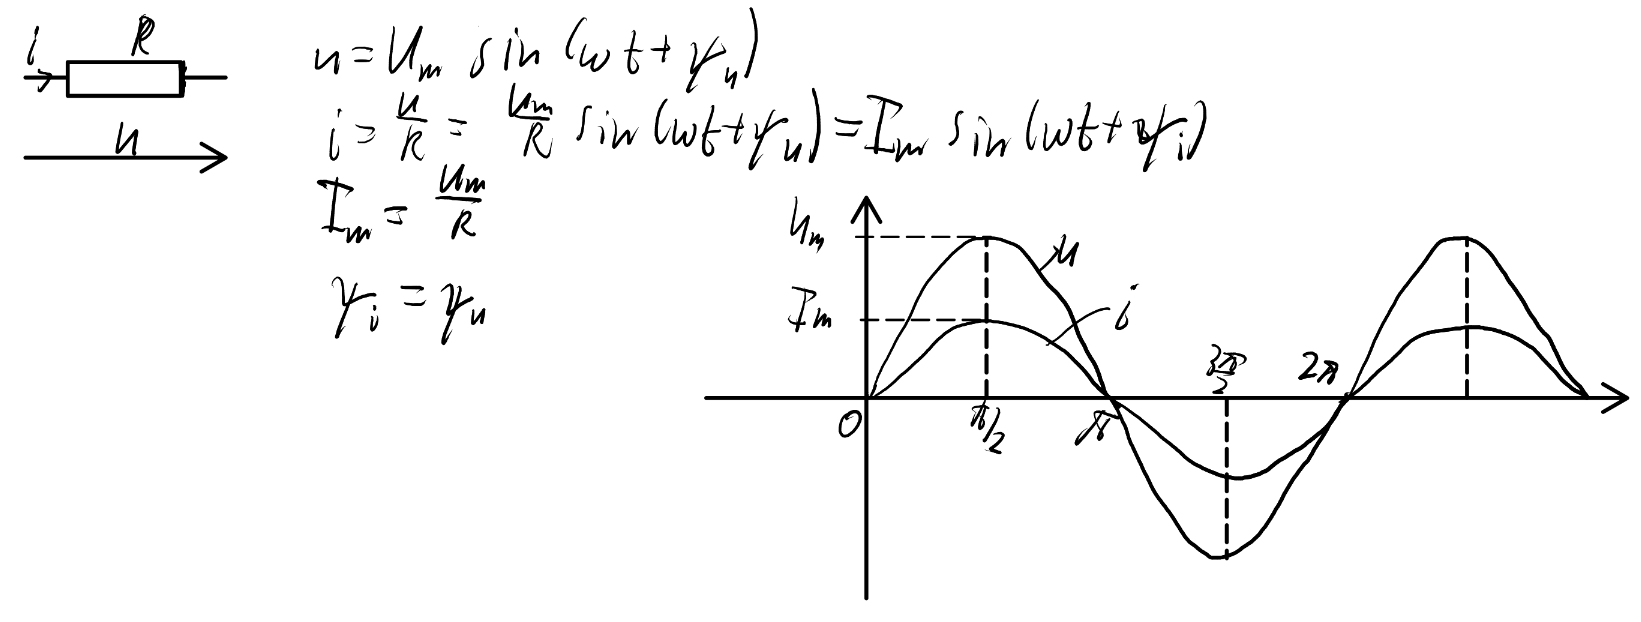 i R
u
u = Um sin (ωt + ψu)
i = u/R = Um/R sin (ωt + ψu) = Im sin (ωt + ψi)
Im = Um/R
ψi = ψu
Um
u
Im
i
3π/2
2π
0
π/2
π